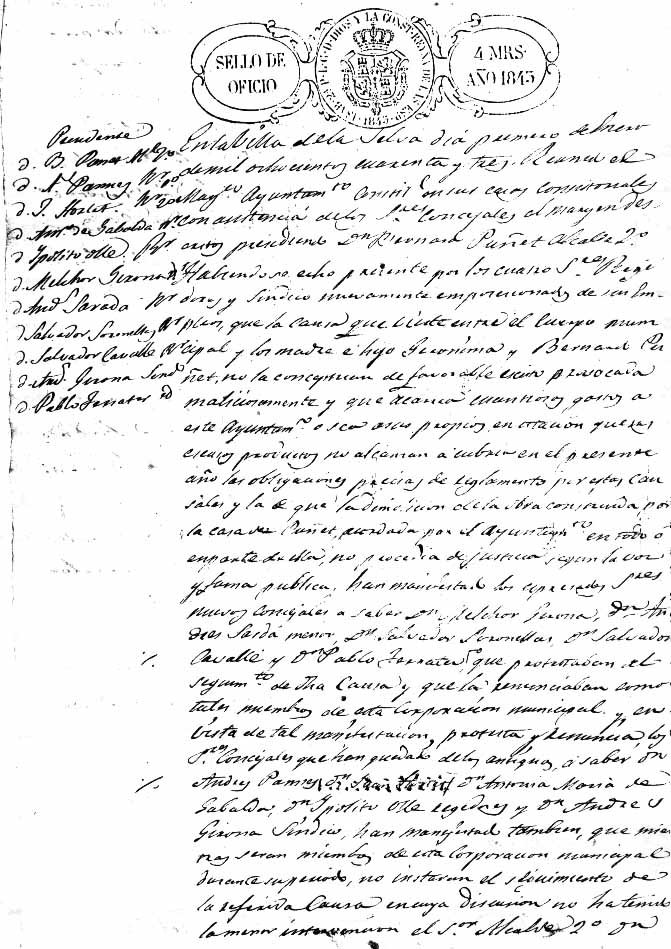 SELLO DE
OFICIO
4 MRS.
AÑO 1843
Presidente
d. B. Punet
d. A. Pamies
d. J. Hortet
d. Ant. de Gabaldá
d. Ypolito Olle
d. Melchor Gerona
d. And. Sardá
d. Salvador Soronellas
d. Salvador Cavallé
d. And. Gerona Sind.
d. Pablo Ferrater id
En la Villa de la Selva dia primero de Enero
de mil ochocientos cuarenta y tres. Reunido el
Mag.co Ayuntam.to Constit.l en sus casas consistoriales
con asistencia de los S.res Concejales al margen des-
critos presidiendo D.n Bernardo Puñet Alcalde 2.o
Habiendose echo presente por los cuatro S.res Regi
dores y Sindico nuevamente emposesionados de sus Em-
pleos, que la causa que existe entre el Cuerpo muni
cipal y los madre e hijo Geronima y Bernardo Pu
ñet, no la conceptuan de favorable exito provocada
maliciosamente y que acarrea cuantiosos gastos a
este Ayuntam.to o sea a sus propios en ocasion que sus
escasos productos no alcanzan a cubrir en el presente
año las obligaciones precisas de reglamento por estas cau
sales y la de que la dimolicion de la obra construida por
la casa de Puñet, acordada por el Ayuntam.to en todo o
en parte de ella, no procedia de justicia segun la voz
y fama publica, han manifestado los expresados S.res
nuevos Concejales a saber D.n Melchor Gerona, D.n An
dres Sardá menor, D.n Salvador Soronellas, D.n Salvador
Cavallé y D.n Pablo Ferrater, que protestaban el
seguim.to de dha Causa y que la renunciaban como
tales miembros de esta Corporacion municipal y en
vista de tal manifestacion, protesta y renuncia, los
S.res Concejales que han quedado de los antiguos, a saber D.n
Andres Pamies D.n Antonio Maria de
Gabaldá, D.n Ypolito Olle regidores y D.n Andres
Gerona Sindico, han manifestado tambien, que mien
tras seran miembros de esta Corporacion municipal
durante su periodo, no instaran el seguimiento de
la referida Causa en cuya discusion no ha tenido
la menor intervencion el S.or Alcalde 2.o D.n